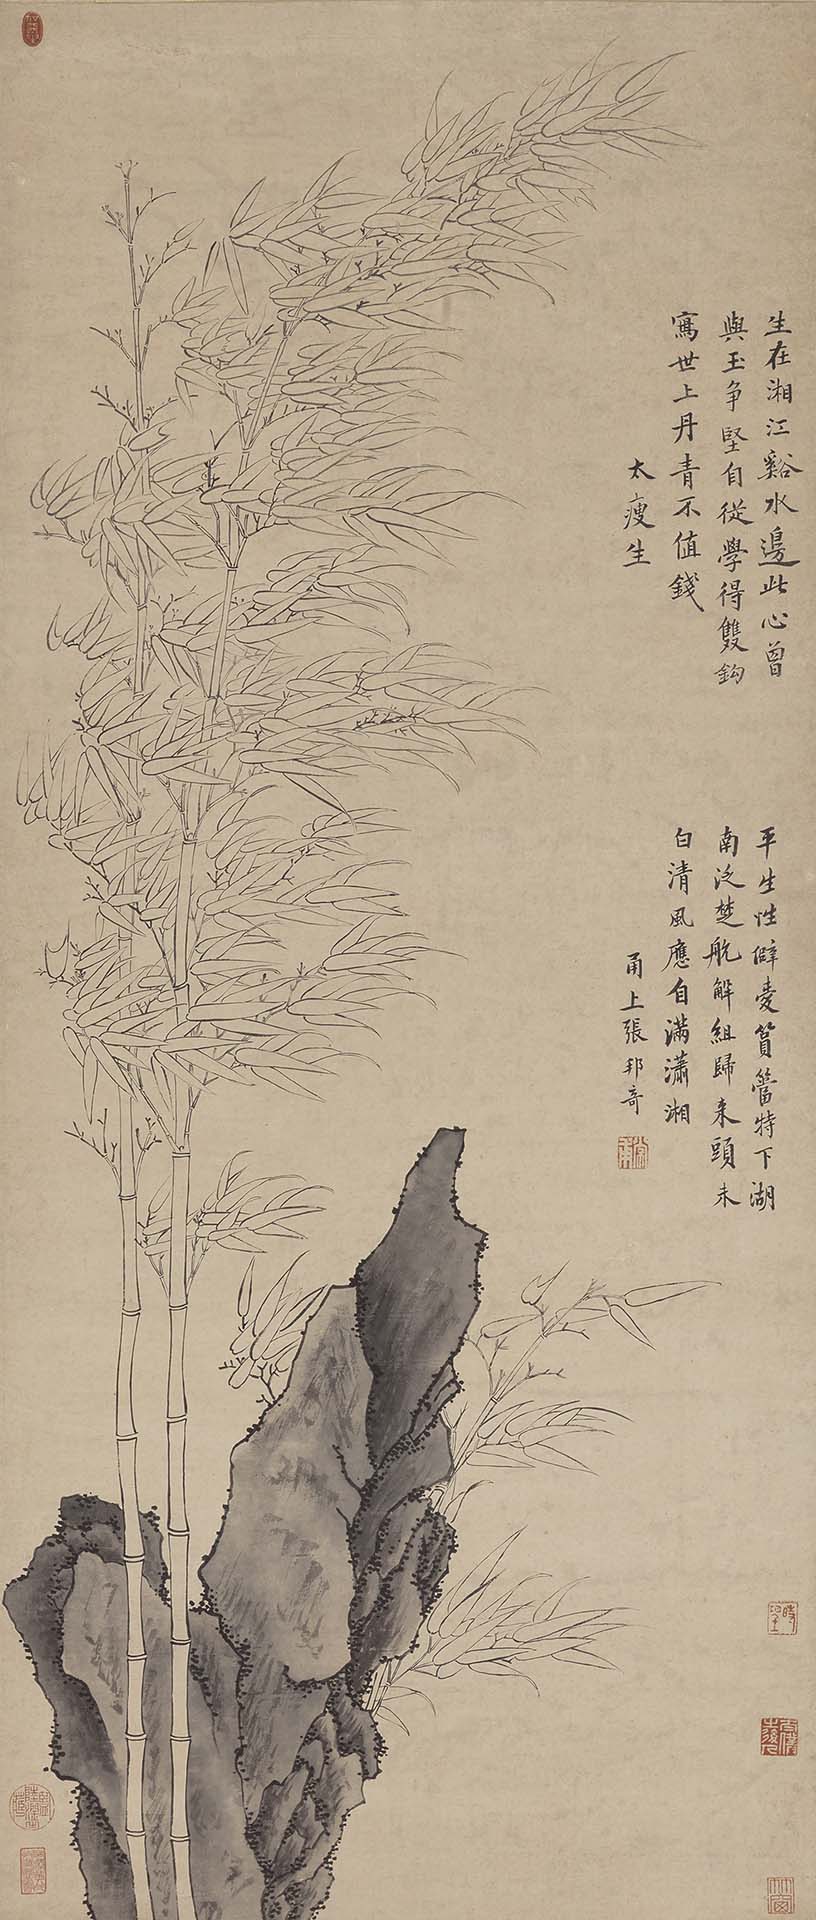 生在湘江谿水邊此心曾
與玉爭堅自從學得雙鈎
寫世上丹青不值錢
太瘦生
平生性僻愛篔簹特下湖
南泛楚航解組歸來頭未
白清風應自滿瀟湘
甬上張邦奇